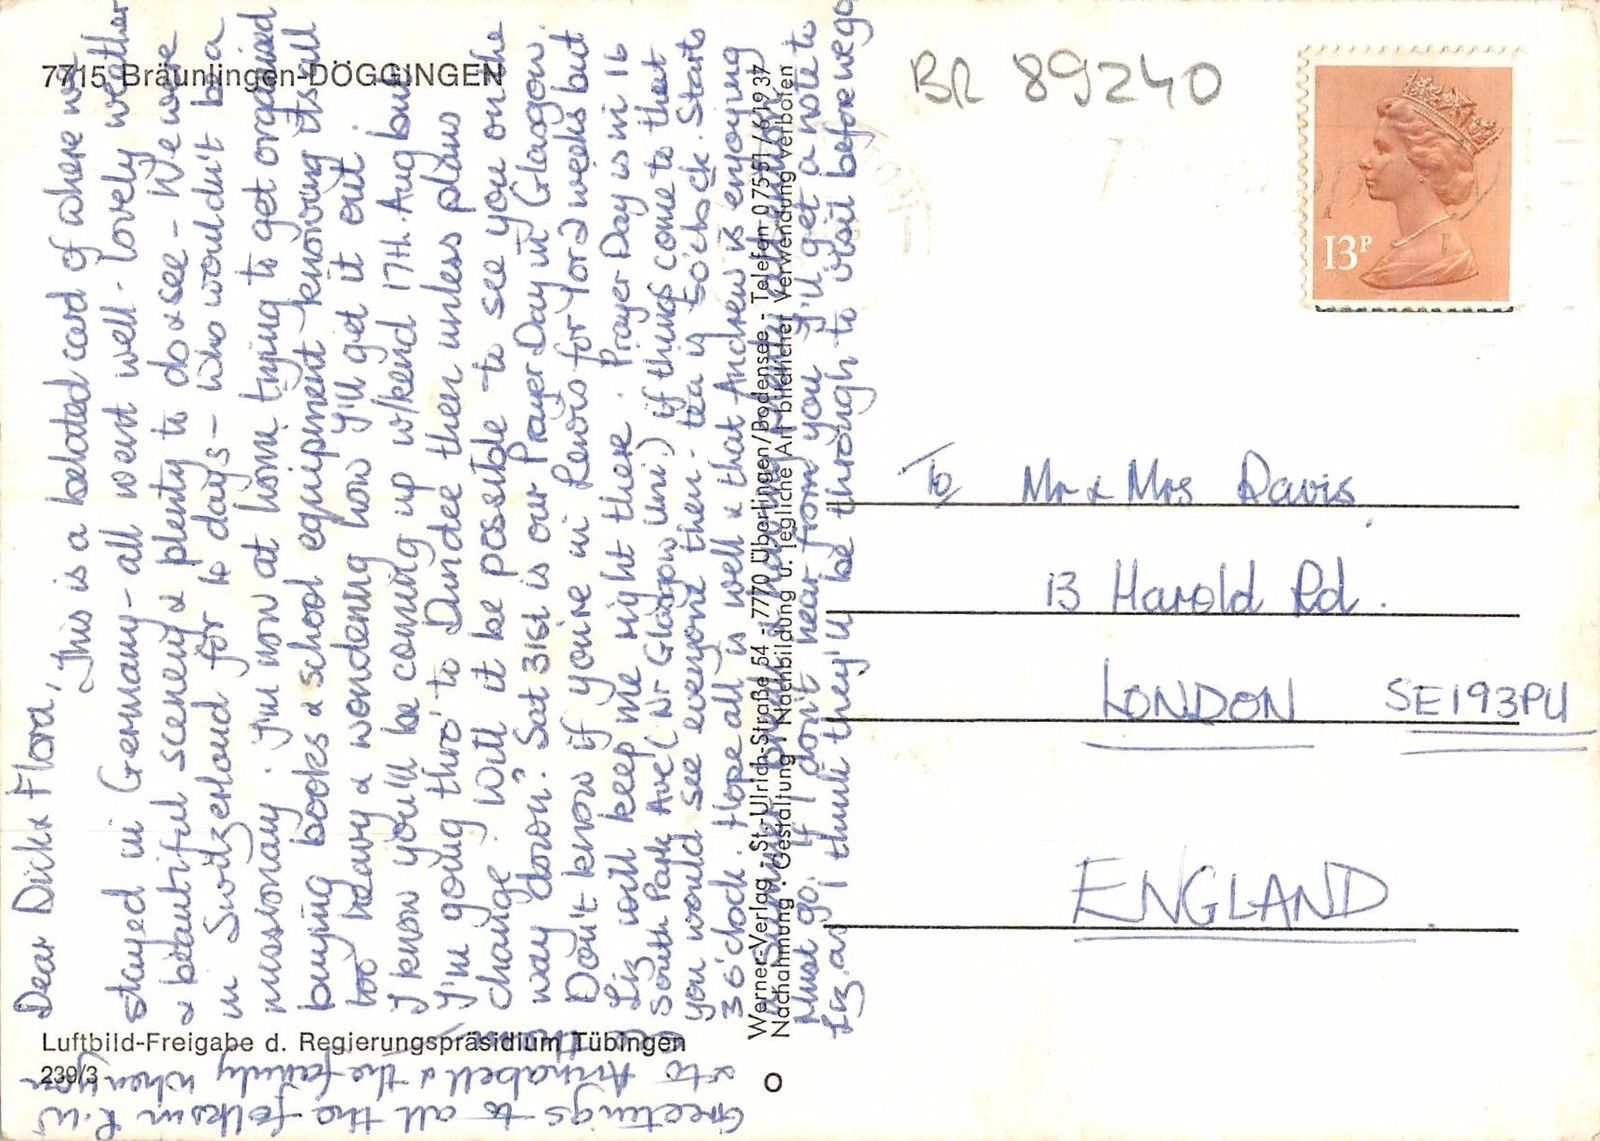 7715 Bräunlingen-DÖGGINGEN
Dear Dick & Flora,
This is a belated card of where we
stayed in Germany - all went well - lovely weather
& beautiful scenery & plenty to do & see - We were
in Switzerland for 4 days - who wouldn't be a
missionary. I'm now at home trying to get organised
buying books & school equipment knowing it's all
too heavy & wondering how I'll get it out.
I know you'll be coming up w/kend 17th. Aug but
I'm going thro' to Dundee then unless plans
change. Will it be possible to see you on the
way down? Sat 31st is our Prayer Day in Glasgow.
Don't know if you're in Lewis for 1 or 2 weeks but
Liz will keep me right there. Prayer Day is in 16
South Park Ave (Nr Glasgow uni.) if things come to that
you would see everyone then - tea is 5o'clock. Starts
3 o'clock. Hope all is well & that Andrew is enjoying
Must go. If I don't hear from you I'll get a note to
Liz as I think they'll be through to visit before we go
Greetings to all the folks in
& to Annabell & the family when you
Luftbild-Freigabe d. Regierungspräsidium Tübingen
239/3
Werner-Verlag - St.-Ulrich-Straße 54 - 7770 Überlingen/Bodensee - Telefon 07551/61937
Nachahmung · Gestaltung · Nachbildung u. jegliche Art bildlicher Verwendung verboten
BR 89240
13P
To Mr & Mrs Davis
13 Harold Rd.
LONDON SE193PU
ENGLAND.